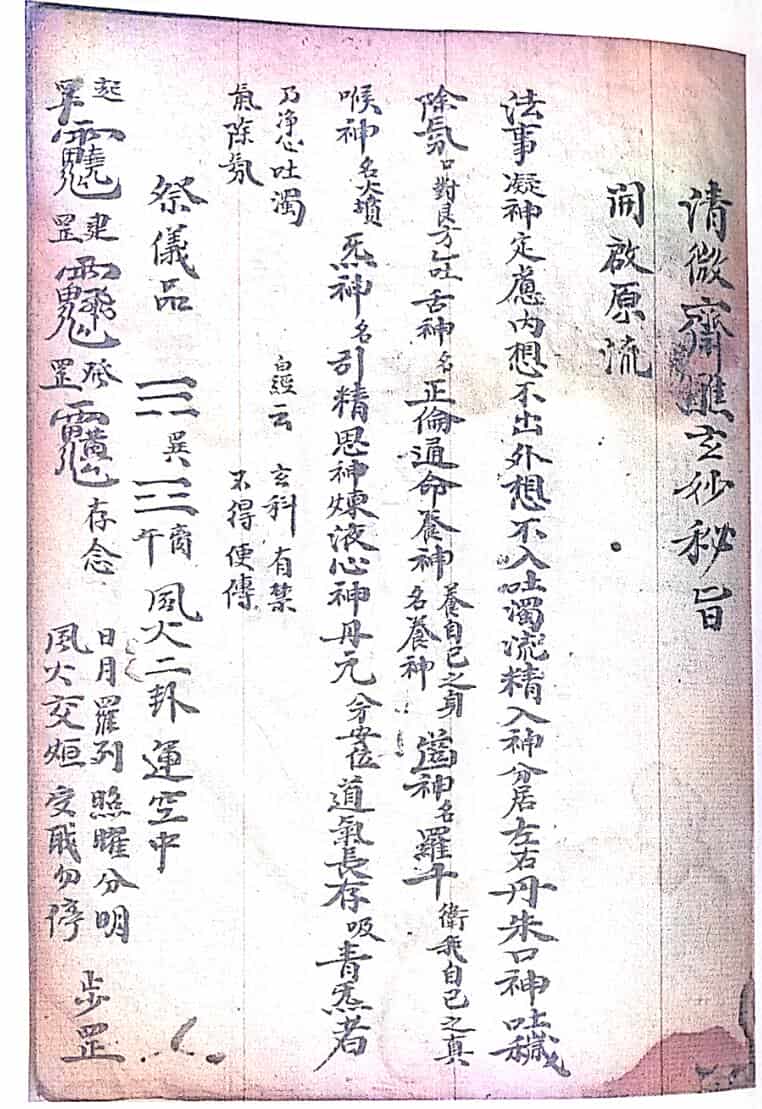 清微齋醮玄妙秘旨
開啟原流
法事凝神定慮內想不出外想不入吐濁流精入神分居左右丹朱口神吐穢
除氛口對艮方乙吐舌神名正倫通命養神養自己之身名養神齒神名羅千衛我自己之真
喉神名火墳炁神名引精思神煉液心神丹元分安位道氣長存吸青炁者
乃净心吐濁氣除氛 白經云 玄科有禁不得便傳
祭儀品 巽 午 風火二卦運空中
罡 建罡 罡 存念 日月羅列照曜分明風火交烜受職勿停 步罡